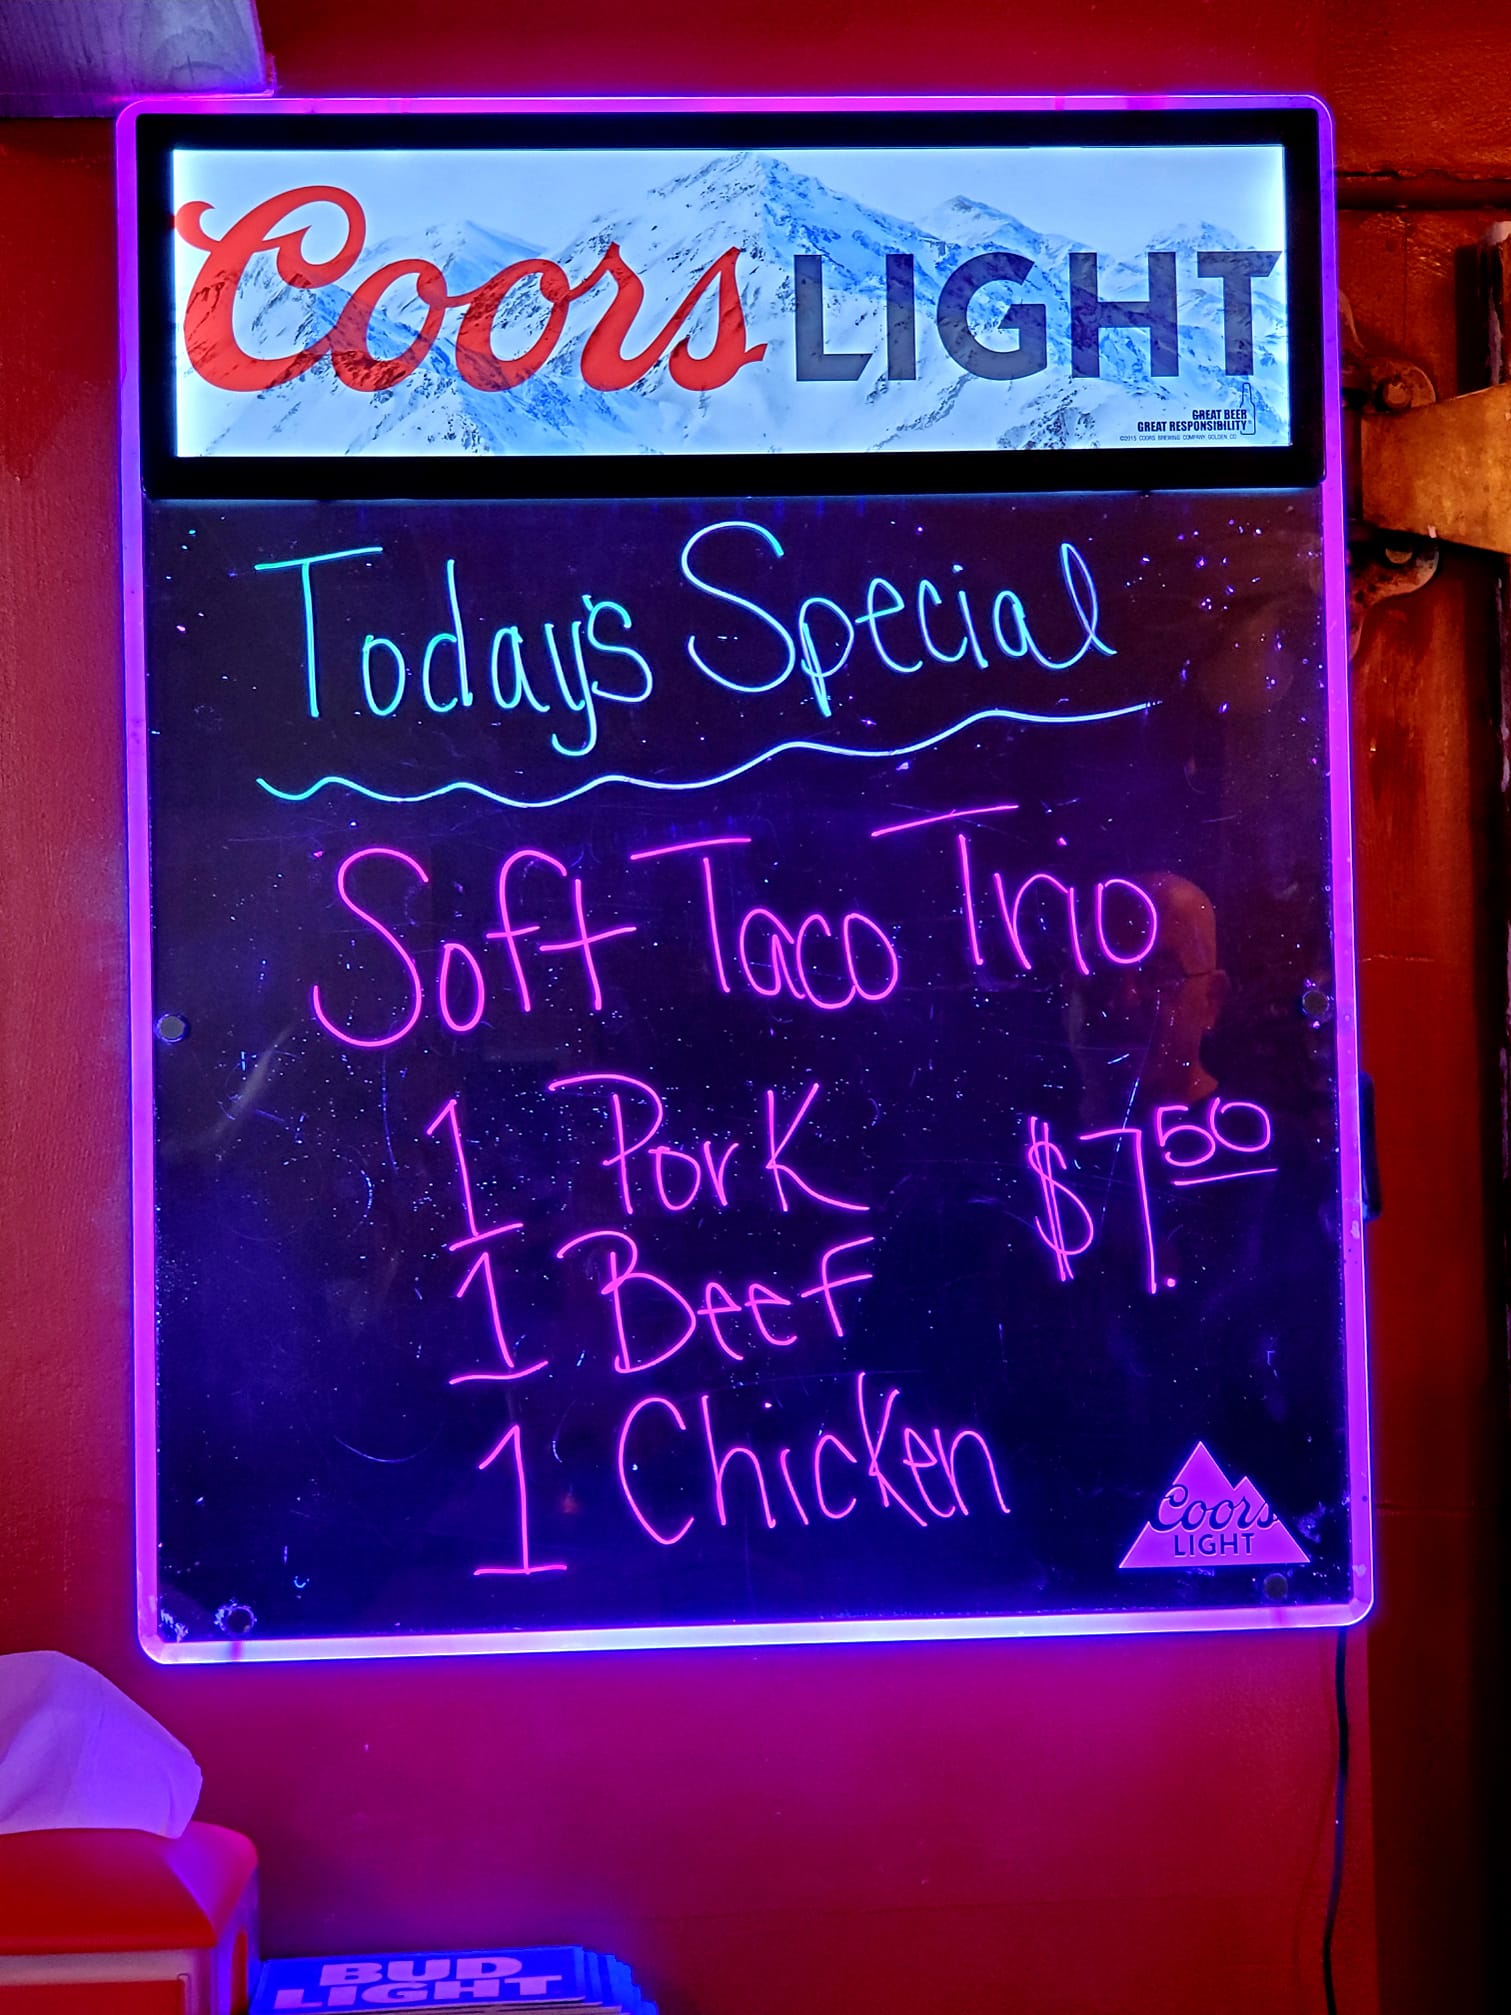 Coors LIGHT
GREAT BEER
GREAT RESPONSIBILITY®
©2015 COORS BREWING COMPANY, GOLDEN, CO
Today's Special
Soft Taco Trio
1 Pork $7.50
1 Beef
1 Chicken
Coors
LIGHT
BUD
LIGHT